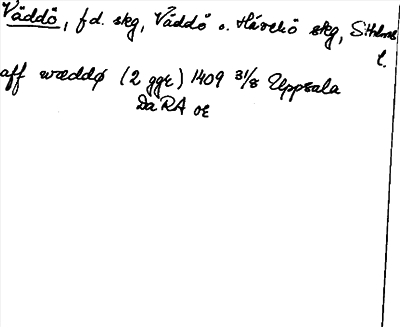 Väddö, fd. skg, Väddö o. Häverö skg, Sthlms
l.
aff wæddø (2 ggr) 1409 31/8 Uppsala
DaRA or